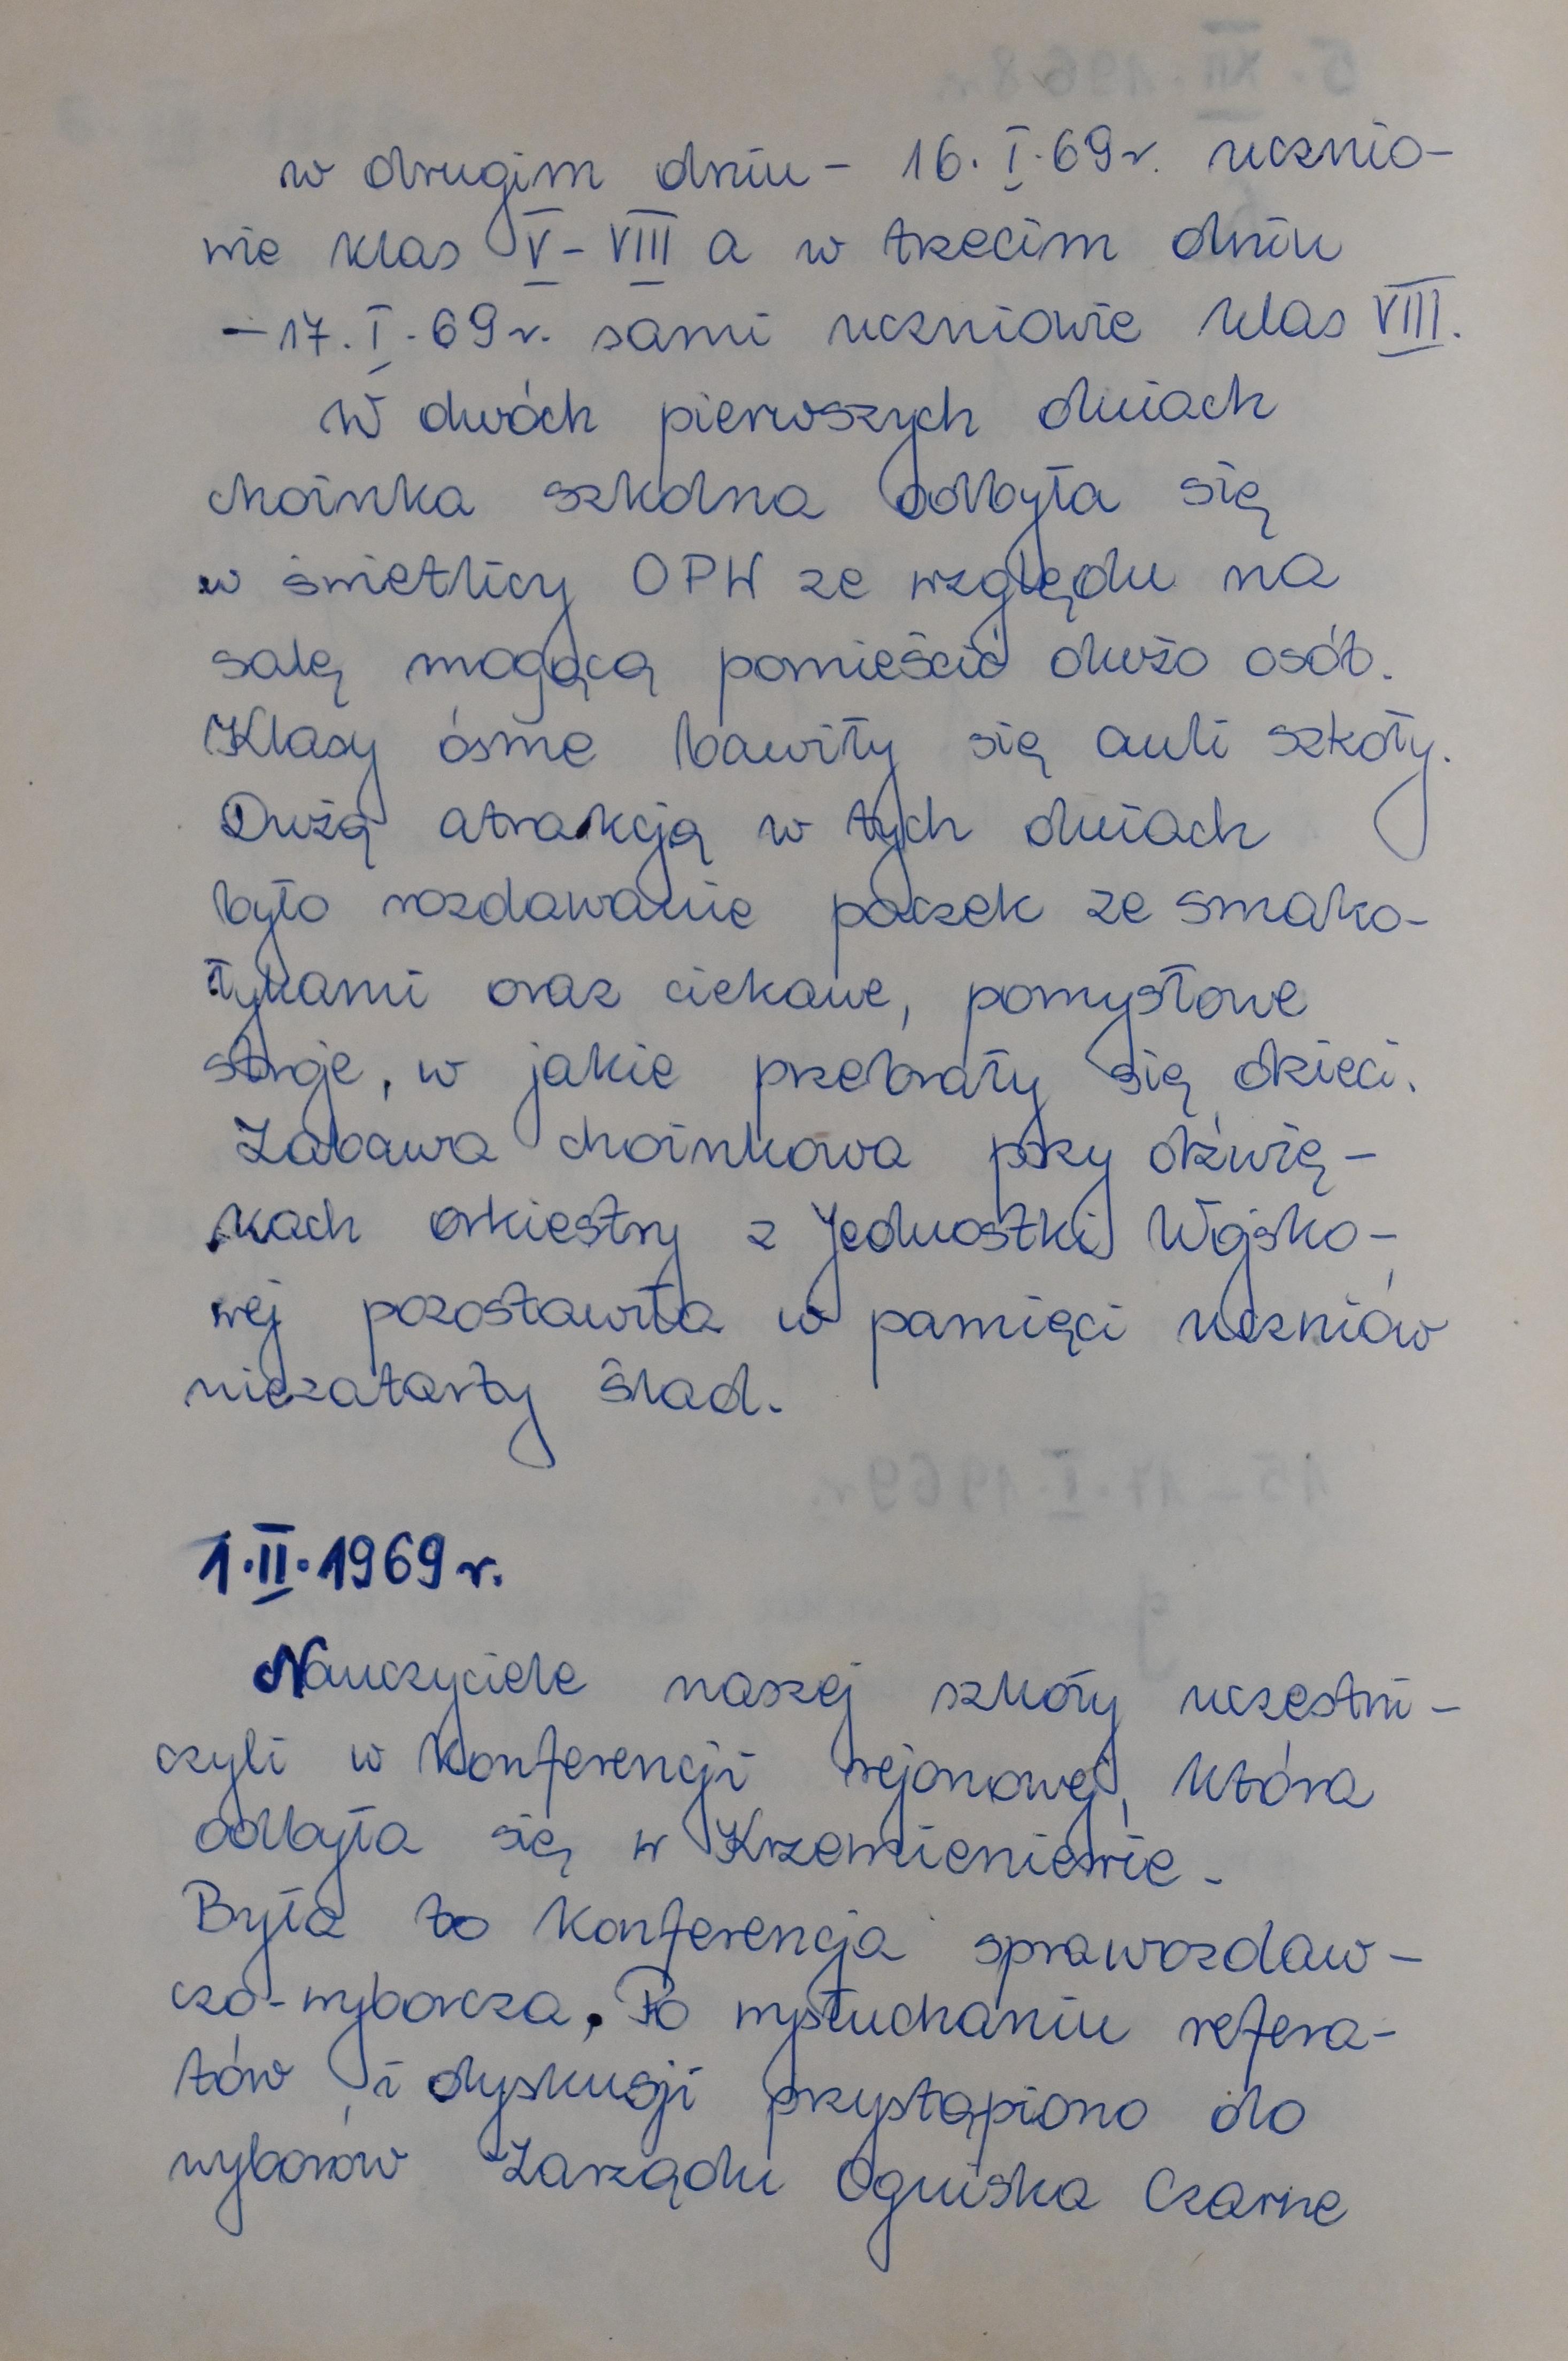 w drugim dniu - 16.I.69r. ucznio-
wie klas V-VIII a w trzecim dniu
-17.I.69r. sami uczniowie klas VIII.
W dwóch pierwszych dniach
choinka szkolna odbyła się
w świetlicy OPW ze względu na
salę mogącą pomieścić dużo osób.
Klasy ósme bawiły się auli szkoły.
Dużą atrakcją w tych dniach
było rozdawanie paczek ze smako-
łykami oraz ciekawe, pomysłowe
stroje, w jakie przebrały się dzieci.
Zabawa choinkowa przy dźwię-
kach orkiestry z Jednostki Wojsko-
wej pozostawiła w pamięci uczniów
niezatarty ślad.
1.II.1969r.
Nauczyciele naszej szkoły uczestni-
czyli w konferencji rejonowej, która
odbyła się w Krzemieniewie.
Była to konferencja sprawozdaw-
czo-wyborcza. Po wysłuchaniu refera-
tów i dyskusji przystąpiono do
wyborów Zarządu Ogniska Czarne